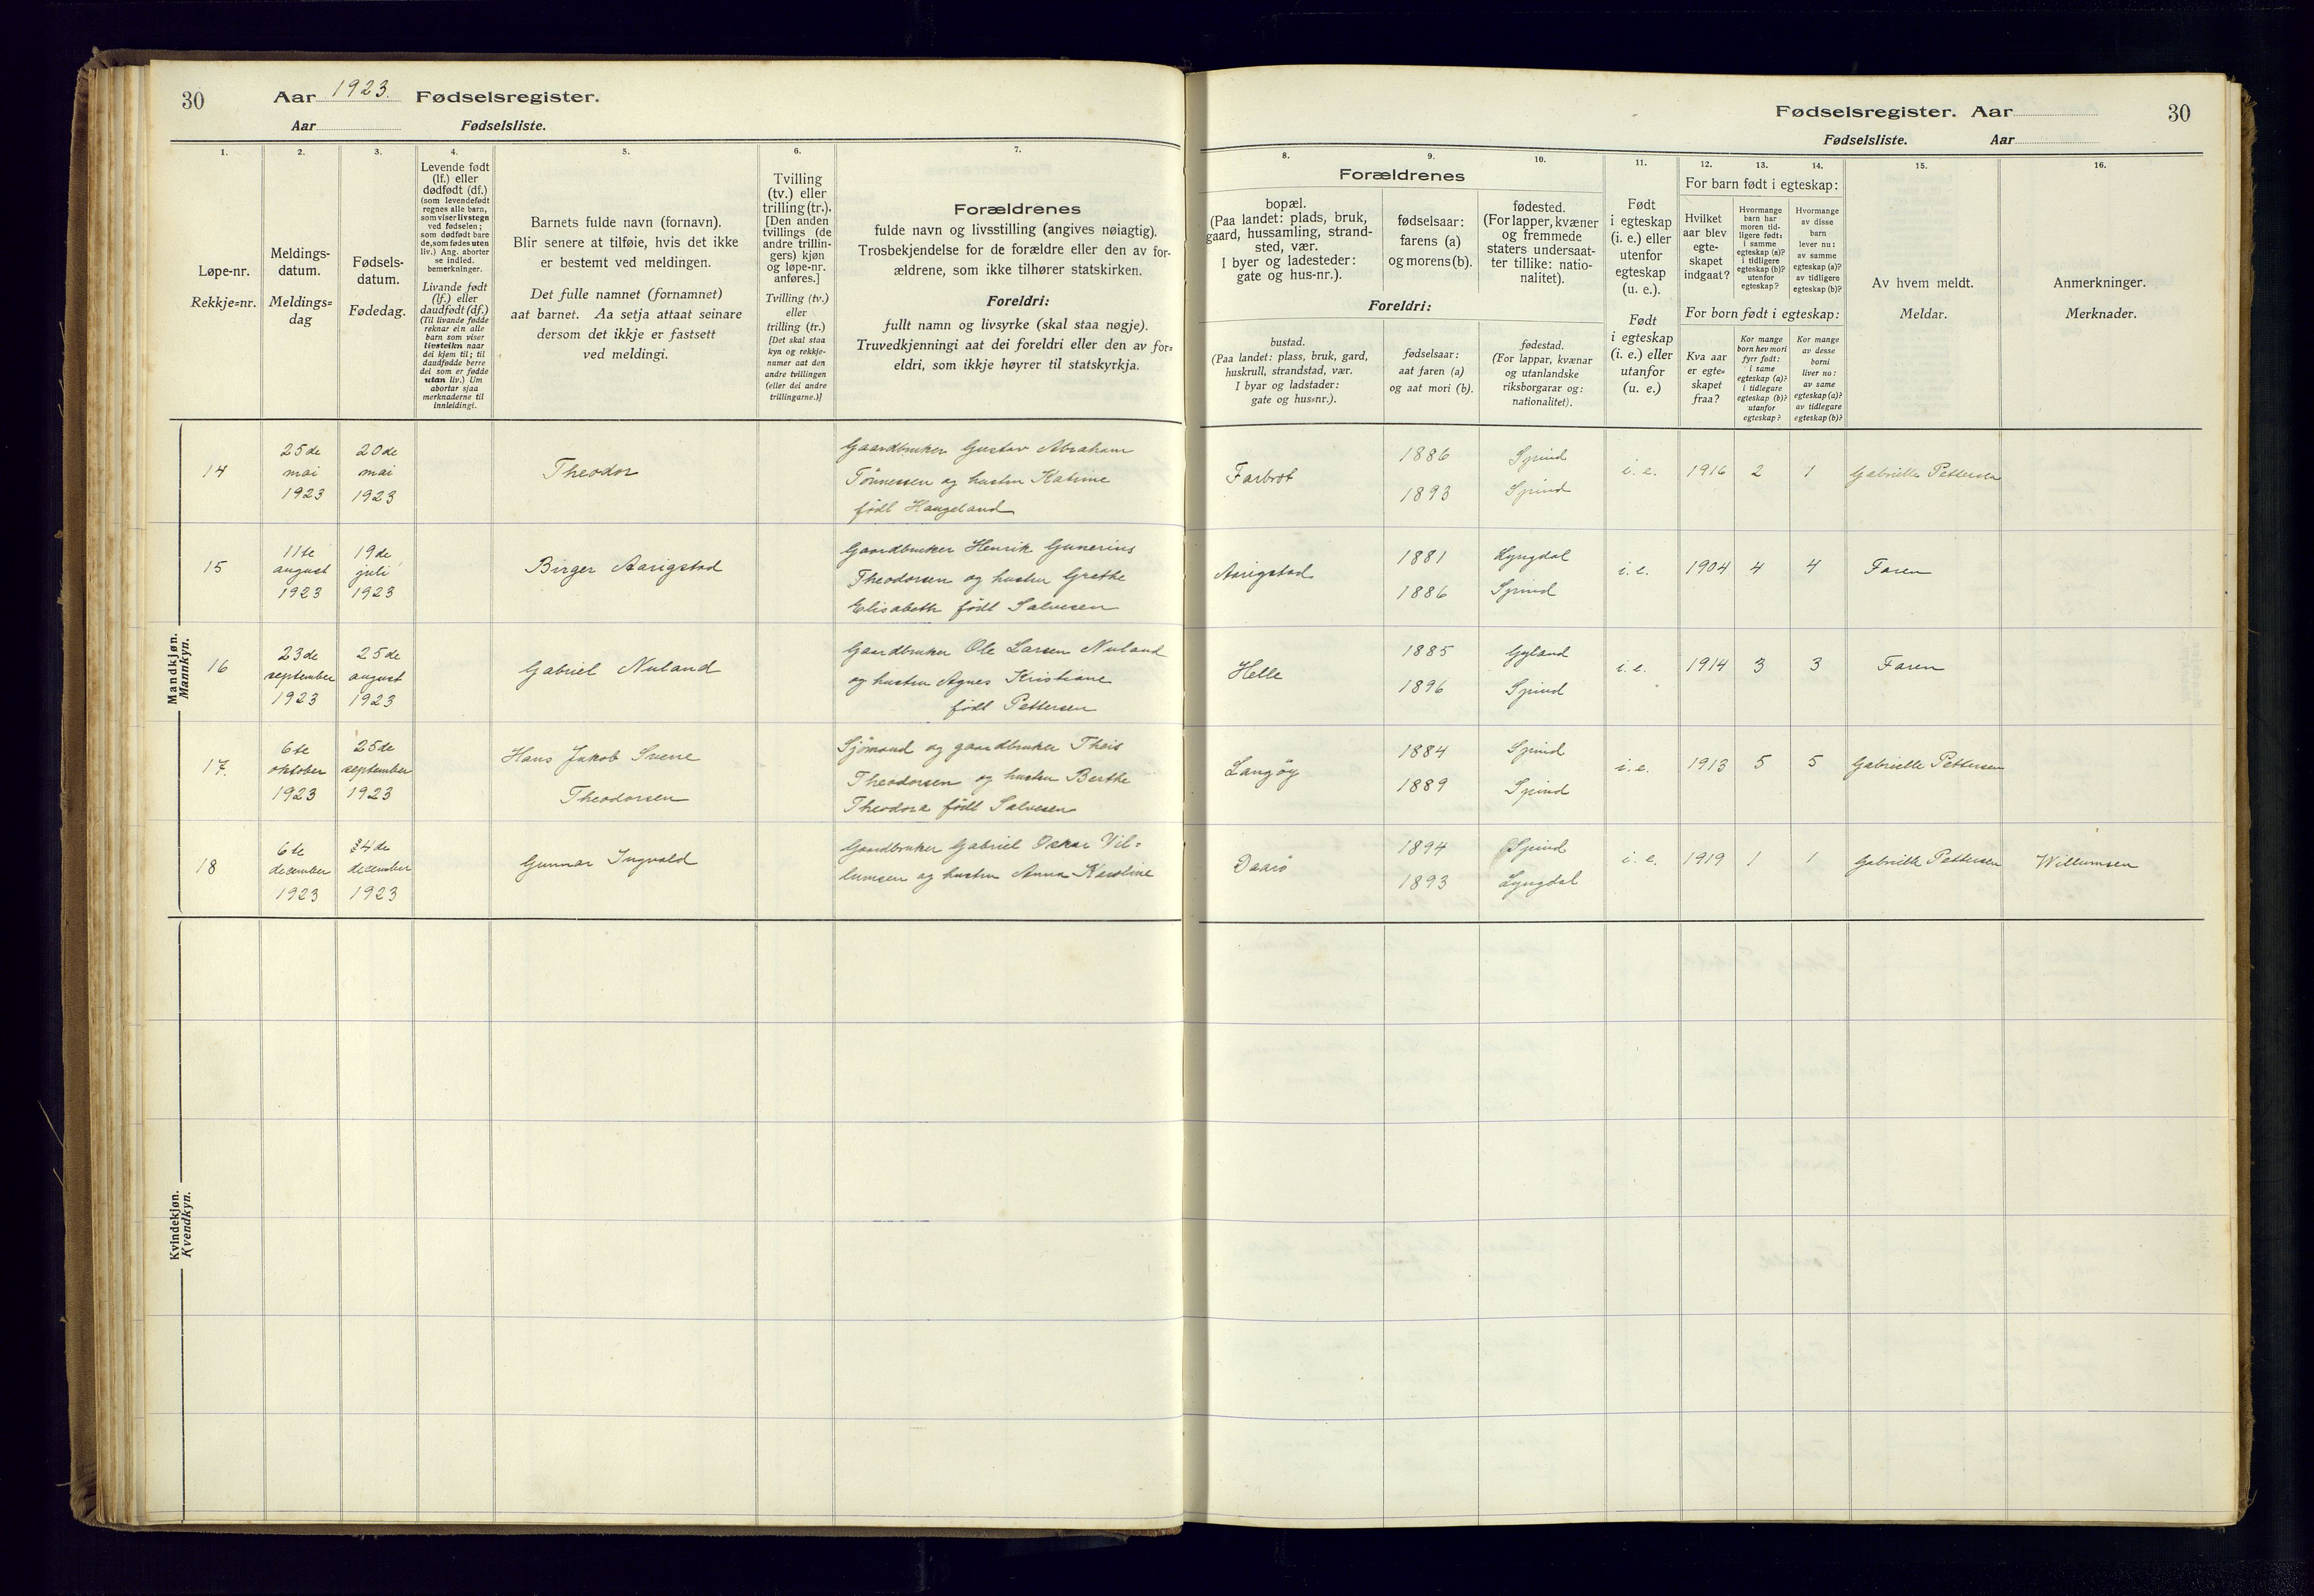 30
Aar 1923. Fødselsregister.
Aar Fødselsliste.
Fødselsregister. Aar
30
Fødselsliste. Aar
1.
Løpe-nr.
Rekkje=nr.
2.
Meldings-
datum.
Meldings=
dag
3.
Fødsels-
datum.
Fødedag.
4.
Levende født
(lf.) eller
dødfødt (df.)
(som levendefødt
regnes alle barn,
som viser livstegn
ved fødselen;
som dødfødt bare
de, som fødes uten
liv.) Ang. aborter
se indled.
bemerkninger.
Livande født
(lf.) eller
daudfødt (df.)
(Til livande fødde
reknar ein alle
barn som viser
livsteikn naar
dei kjem til; til
daudfødde berre
dei som er fødde
utan liv.) Um
abortar sjaa
merknaderne til
innleidingi.
5.
Barnets fulde navn (fornavn).
Blir senere at tilføie, hvis det ikke
er bestemt ved meldingen.
Det fulle namnet (fornamnet)
aat barnet. Aa setja attaat seinare
dersom det ikkje er fastsett
ved meldingi.
6.
Tvilling
(tv.) eller
trilling (tr.).
[Den anden
tvillings (de
andre trillin-
gers) kjøn
og løpe-nr.
anføres.]
Tvilling (tv.)
eller
trilling (tr.)
[Det skal staa
kyn og rekkje-
numer aat den
andre tvillingen
(eller dei andre
trillingarne.)]
7.
Forældrenes
fulde navn og livsstilling (angives nøiagtig).
Trosbekjendelse for de forældre eller den av for-
ældrene, som ikke tilhører statskirken.
Foreldri:
fullt namn og livsyrke (skal staa nøgje).
Truvedkjenningi aat dei foreldri eller den av for=
eldri, som ikkje høyrer til statskyrkja.
8.
Forældrenes
bopæl.
(Paa landet: plads, bruk,
gaard, hussamling, strand-
sted, vær.
I byer og ladesteder:
gate og hus-nr.).
Foreldri:
bustad.
(Paa landet: plass, bruk, gard,
huskrull, strandstad, vær.
I byar og ladstader:
gate og hus=nr.).
9.
fødselsaar:
farens (a)
og morens (b).
fødselsaar:
aat faren (a)
og aat mori (b).
10.
fødested.
(For lapper, kvæner
og fremmede
staters undersaat-
ter tillike: natio-
nalitet).
fødestad.
(For lappar, kvænar
og utanlandske
riksborgarar og:
nationalitet).
11.
Født
i egteskap
(i. e.) eller
utenfor
egteskap
(u. e.).
Født
i egteskap
(i. e.) eller
utanfor
(u. e.)
12.
For barn født i egteskap:
Hvilket
aar blev
egte-
skapet
indgaat?
For born født i egteskap:
Kva aar
er egte=
skapet
fraa?
13.
Hvormange
barn har
moren tid-
ligere født:
i samme
egteskap (a)?
i tidligere
egteskap (b)?
utenfor
egteskap?
Kor mange
born hev mori
fyrr født:
i same
egteskap (a)?
i tidlegare
egteskap (b)?
utanfor
egteskap?
14.
Hvormange
av disse
barn
lever nu:
av samme
egteskap (a)?
av tidligere
egteskap (b)?
Kor mange
av desse
borni
liver no:
av same
egteskap (a)?
av tidlegare
egteskap (b)?
15.
Av hvem meldt.
Meldar.
16.
Anmerkninger.
Merknader.
Mandkjøn.
Mannkyn.
14
25de
mai
1923
20de
mai
1923
Theodor
Gaardbruker Gustav Abraham
Tönnessen og hustru Katrine
född Haugeland
Farbrot
1886
1893
Spind
Spind
i. e.
1916
2
1
Gabrielle Pettersen
15
11te
august
1923
19de
juli
1923
Birger Aarigstad
Gaardbruker Henrik Gunerius
Theodorsen og hustru Grethe
Elisabeth född Salvesen
Aarigstad
1881
1886
Lyngdal
Spind
i. e.
1904
4
4
Faren
16
23de
september
1923
25de
august
1923
Gabriel Nuland
Gaardbruker Ole Larsen Nuland
og hustru Agnes Kristiane
född Pettersen
Helle
1885
1896
Gyland
Spind
i. e.
1914
3
3
Faren
17.
6te
oktober
1923
25de
september
1923
Hans Jakob Svene
Theodorsen
Sjömand og gaardbruker Theis
Theodorsen og hustru Berthe
Theodora född Salvesen
Langöy
1884
1889
Spind
Spind
i. e.
1913
5
5
Gabrielle Pettersen
18
6te
december
1923
4de
december
1923
Gunnar Ingvald
Gaardbruker Gabriel Oskar Vil=
lumsen og hustru Anna Karoline
Daarö
1894
1893
Spind
Lyngdal
i. e.
1919
1
1
Gabrielle Pettersen
Willumsen
Kvindekjøn.
Kvendkyn.